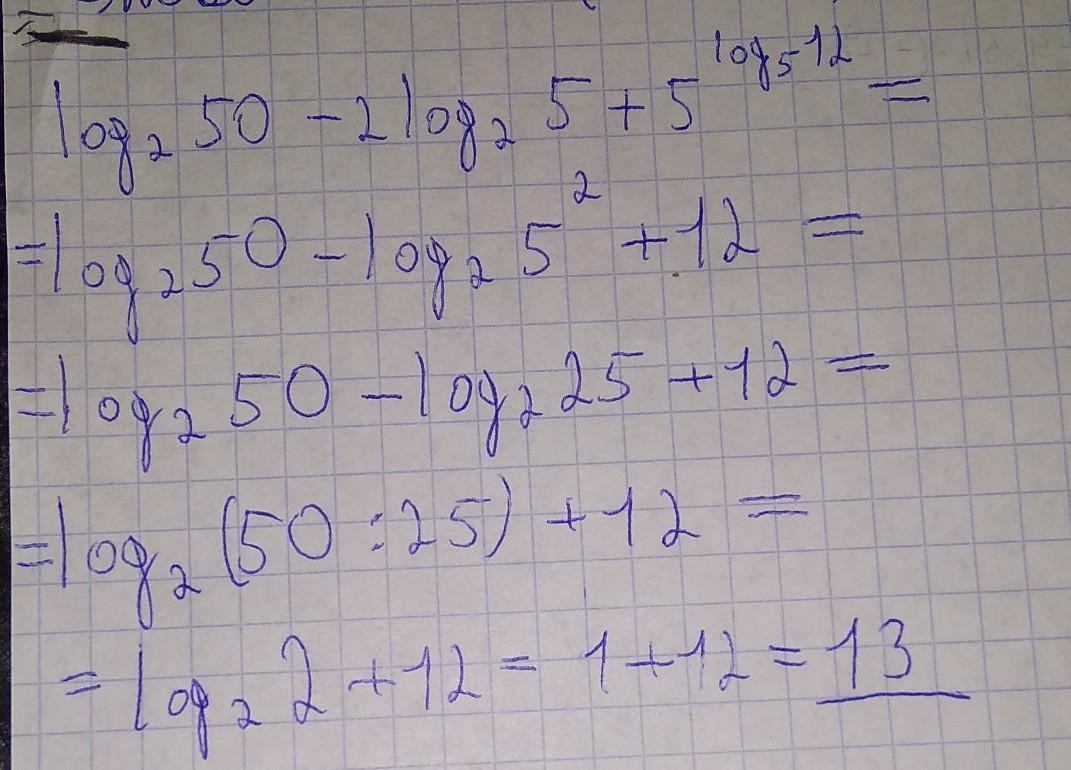 log₂ 50 - 2 log₂ 5 + 5^(log₅ 12) =
= log₂ 50 - log₂ 5² + 12 =
= log₂ 50 - log₂ 25 + 12 =
= log₂ (50 : 25) + 12 =
= log₂ 2 + 12 = 1 + 12 = 13